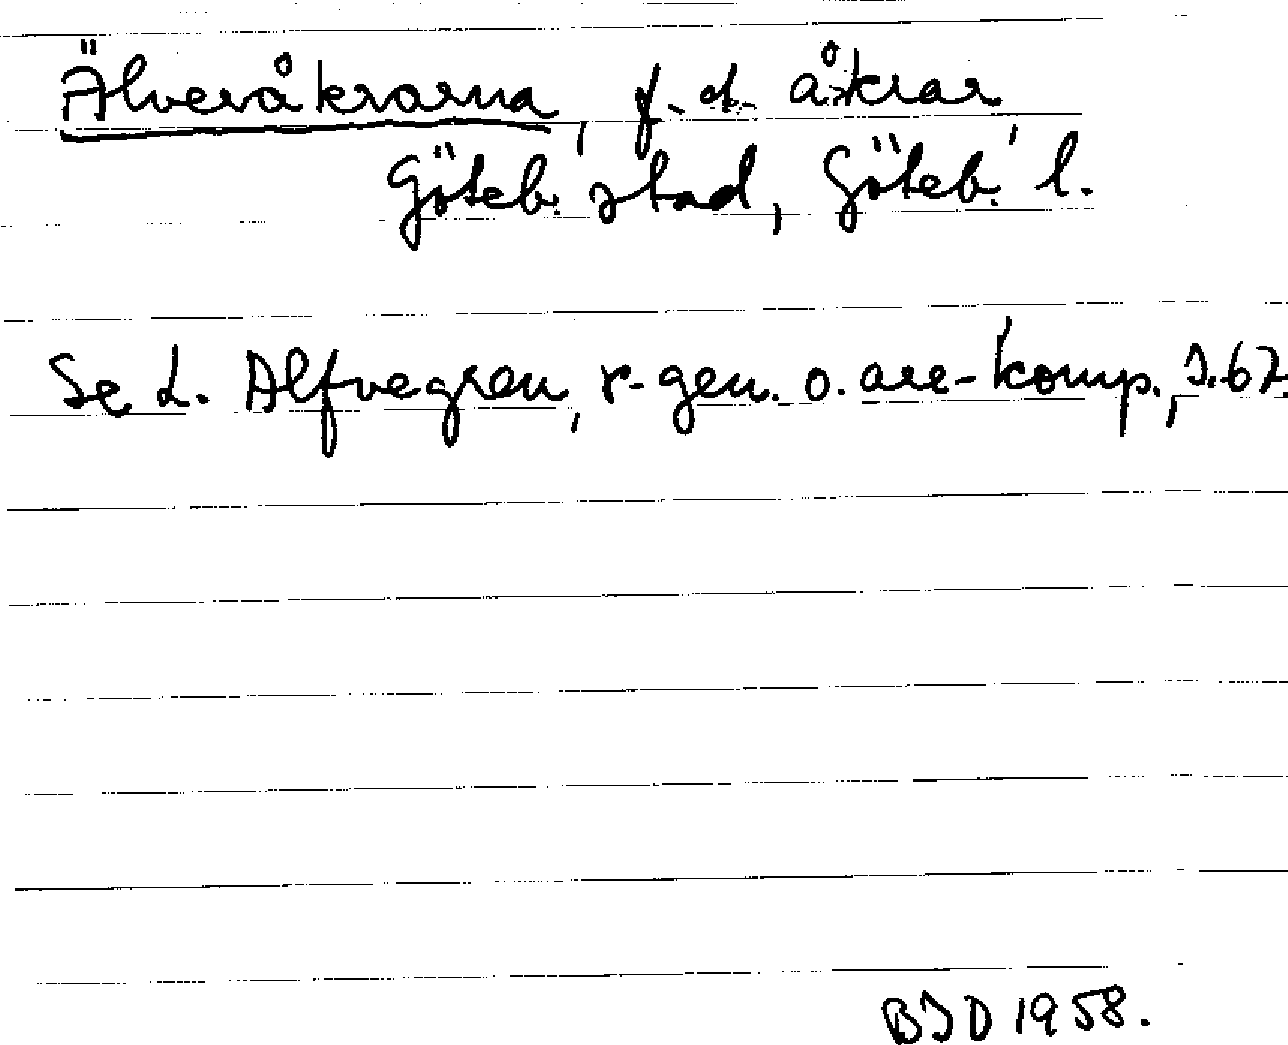 Älveråkrarna, f. d. åkrar
Göteb. stad, Göteb. l.
Se L. Alfvegren, r-gen. o. are-komp., s. 67.
BSD 1958.